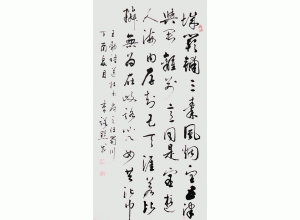 城闕輔三秦風烟望五津
與君離別意同是宦遊
人海內存知己天涯若比
鄰無為在歧路兒女共沾巾
王勃詩送杜少府之任蜀川
丁酉夏月 李